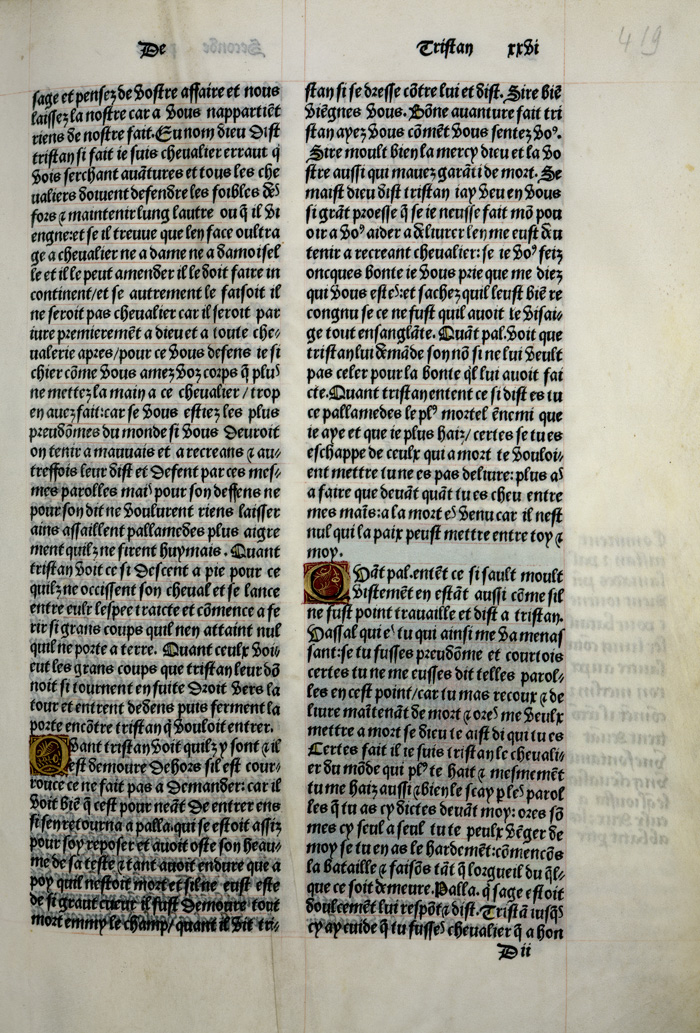 De
Tristan xxvi
419
sage et pensez de vostre affaire et nous
laissez la nostre car a vous nappartiēt
riens de nostre fait. Eu nom dieu dist
tristan si fait ie suis chevalier erraut q̄
vois serchant auātures et tous les che
ualiers doiuent defendre les foibles des
fors ⁊ maintenir lung lautre ou q̄ il vi
engne: et se il treuue que len face oultra
ge a chevalier ne a dame ne a damoisel
le et il le peut amender il le doit faire in
continent/et se autrement le faisoit il
ne seroit pas chevalier car il seroit par
iure premieremēt a dieu et a toute che⸗
ualerie apres/pour ce vous defens ie si
chier cōme vous amez voz corps q̄ plus
ne mettez la main a ce chevalier/trop
en auez fait: car se vous estiez les plus
preudōmes du monde si vous deuroit
on tenir a mauuais et a recreans ⁊ au⸗
treffois leur dist et defent par ces mes⸗
mes parolles mais pour son deffens ne
pour son dit ne voulurent riens laisser
ains assaillent pallamedes plus aigre
ment quilz ne firent huymais. Quant
tristan voit ce si descent a pie pour ce
quilz ne occissent son cheval et se lance
entre eulx lespee traicte et cōmence a fe
rir si grans coups quil nen attaint nul
quil ne porte a terre. Quant ceulx voi⸗
ent les grans coups que tristan leur dō
noit si tournent en fuite droit vers la
tour et entrent dedens puis ferment la
porte encōtre tristan q̄ vouloit entrer.
Quant tristan voit quilz y sont ⁊ il
est demoure dehors sil est cour⸗
rouce ce ne fait pas a demander: car il
voit biē q̄ cest pour neāt de entrer ens
si sen retourna a palla. qui se estoit assiz
pour soy reposer et auoit oste son heau⸗
me de sa teste ⁊ tant auoit endure que a
poy quil nestoit mort et sil ne eust este
de si grant cueur il fust demoure tout
mort emmy le champ/quant il vit tri⸗
stan si se dresse cōtre lui et dist. Sire biē
viēgnes vous. Bōne auanture fait tri
stan ayez vous cōmēt vous sentez voꝰ.
Sire moult bien la mercy dieu et la vo
stre aussi qui mauez garāti de mort. Se
maist dieu dist tristan iay veu en vous
si grāt proesse q̄ se ie neusse fait mō pou
oir a voꝰ aider a deliurer len me eust du
tenir a recreant chevalier: se ie voꝰ feiz
oncques bonte ie vous prie que me diez
qui vous estes: et sachez quil leust biē re
congnu se ce ne fust quil auoit le visai⸗
ge tout ensanglāte. Quāt pal. voit que
tristan lui demāde son nō si ne lui veult
pas celer pour la bonte q̄l lui auoit fai
cte. Quant tristan entent ce si dist es tu
ce pallamedes le plꝰ mortel ēnemi que
ie aye et que ie plus haiz/certes se tu es
eschappe de ceulx qui a mort te vouloi⸗
ent mettre tu ne es pas deliure: plus as
a faire que deuāt quāt tu es cheu entre
mes mais: a la mort es venu car il nest
nul qui la paix peust mettre entre toy ⁊
moy.
Quāt pal. entēt ce si sault moult
vistemēt en estāt aussi cōme sil
ne fust point trauaille et dist a tristan.
Vassal qui es tu qui ainsi me va menas
sant: se tu fusses preudōme et courtois
certes tu ne me eusses dit telles parol⸗
les en cest point/car tu mas recoux ⁊ de
liure maītenāt de mort ⁊ ores me veulx
mettre a mort se dieu te aist di qui tu es
Certes fait il ie suis tristan le chevali⸗
er du mōde qui plꝰ te hait ⁊ mesmemēt
tu me haiz aussi ⁊ bien le scay p les parol
les q̄ tu as cy dictes deuāt moy: ores sō
mes cy seul a seul tu te peulx vēger de
moy se tu en as le hardemēt: cōmencōs
la bataille ⁊ faisōs tāt q̄ lorgueil du q̄l⸗
que ce soit demeure. Palla. q̄ sage estoit
doulcemēt lui respōt ⁊ dist. Tristā iusqs
cy ay cuide q̄ tu fusses chevalier q̄ a hon
D ii